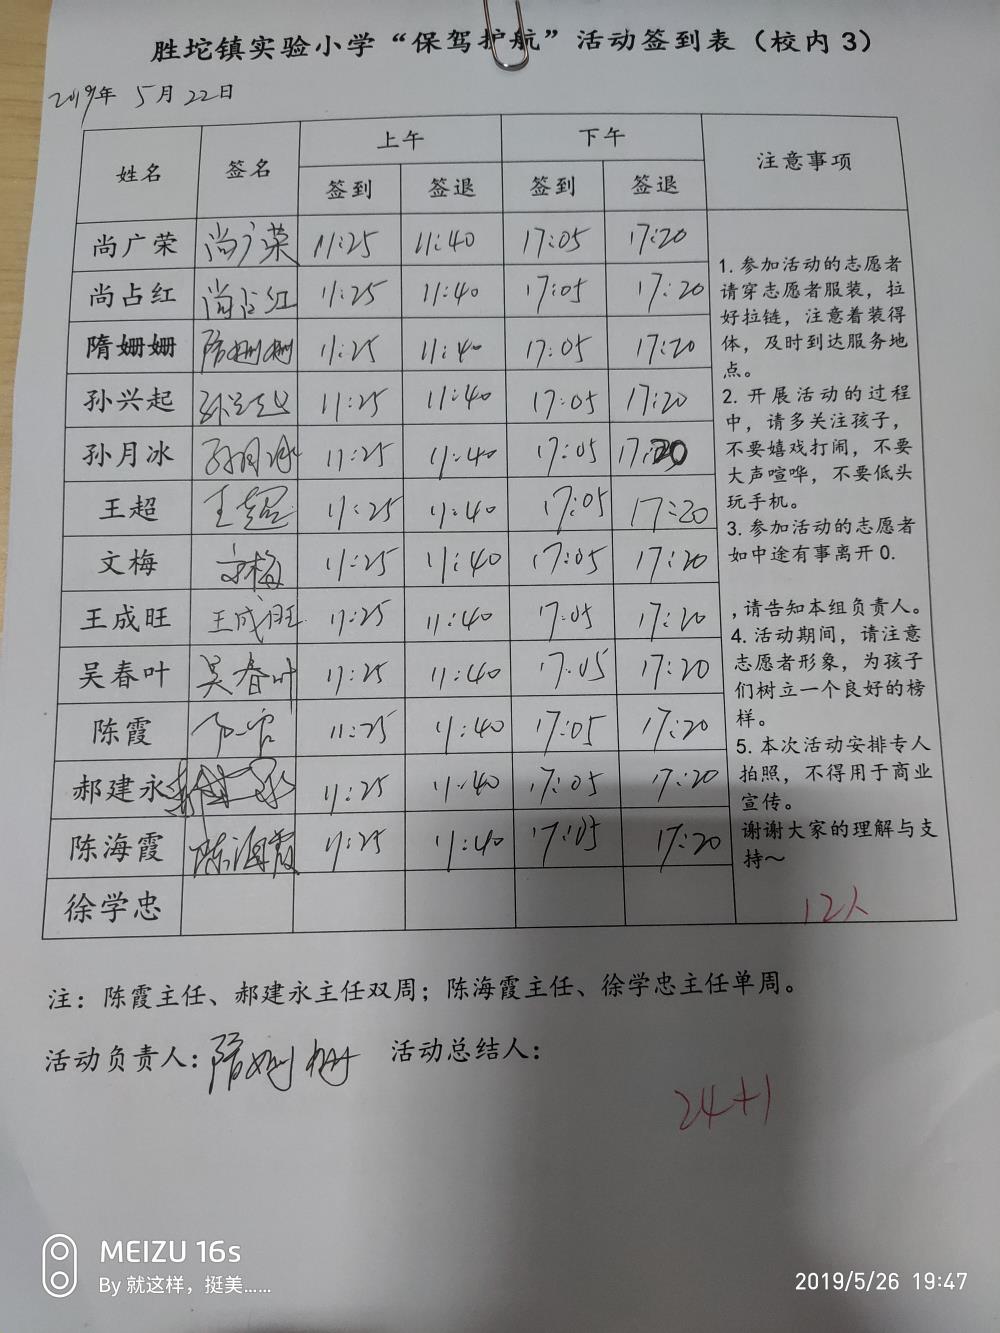 胜坨镇实验小学“保驾护航”活动签到表（校内3）
2019年 5月22日
姓名 签名 上午 下午 注意事项
签到 签退 签到 签退
尚广荣 尚广荣 11:25 11:40 17:05 17:20
尚占红 尚占红 11:25 11:40 17:05 17:20
隋姗姗 隋姗姗 11:25 11:40 17:05 17:20
孙兴起 孙兴起 11:25 11:40 17:05 17:20
孙月冰 孙月冰 11:25 11:40 17:05 17:20
王超 王超 11:25 11:40 17:05 17:20
文梅 文梅 11:25 11:40 17:05 17:20
王成旺 王成旺 11:25 11:40 17:05 17:20
吴春叶 吴春叶 11:25 11:40 17:05 17:20
陈霞 11:25 11:40 17:05 17:20
郝建永 郝建永 11:25 11:40 17:05 17:20
陈海霞 陈海霞 11:25 11:40 17:05 17:20
徐学忠
1. 参加活动的志愿者
请穿志愿者服装，拉
好拉链，注意着装得
体，及时到达服务地
点。
2. 开展活动的过程
中，请多关注孩子，
不要嬉戏打闹，不要
大声喧哗，不要低头
玩手机。
3. 参加活动的志愿者
如中途有事离开0.
,请告知本组负责人。
4. 活动期间，请注意
志愿者形象，为孩子
们树立一个良好的榜
样。
5. 本次活动安排专人
拍照，不得用于商业
宣传。
谢谢大家的理解与支
持～
12人
注：陈霞主任、郝建永主任双周；陈海霞主任、徐学忠主任单周。
活动负责人：隋姗姗 活动总结人：
24+1
MEIZU 16s
By 就这样，挺美......
2019/5/26 19:47